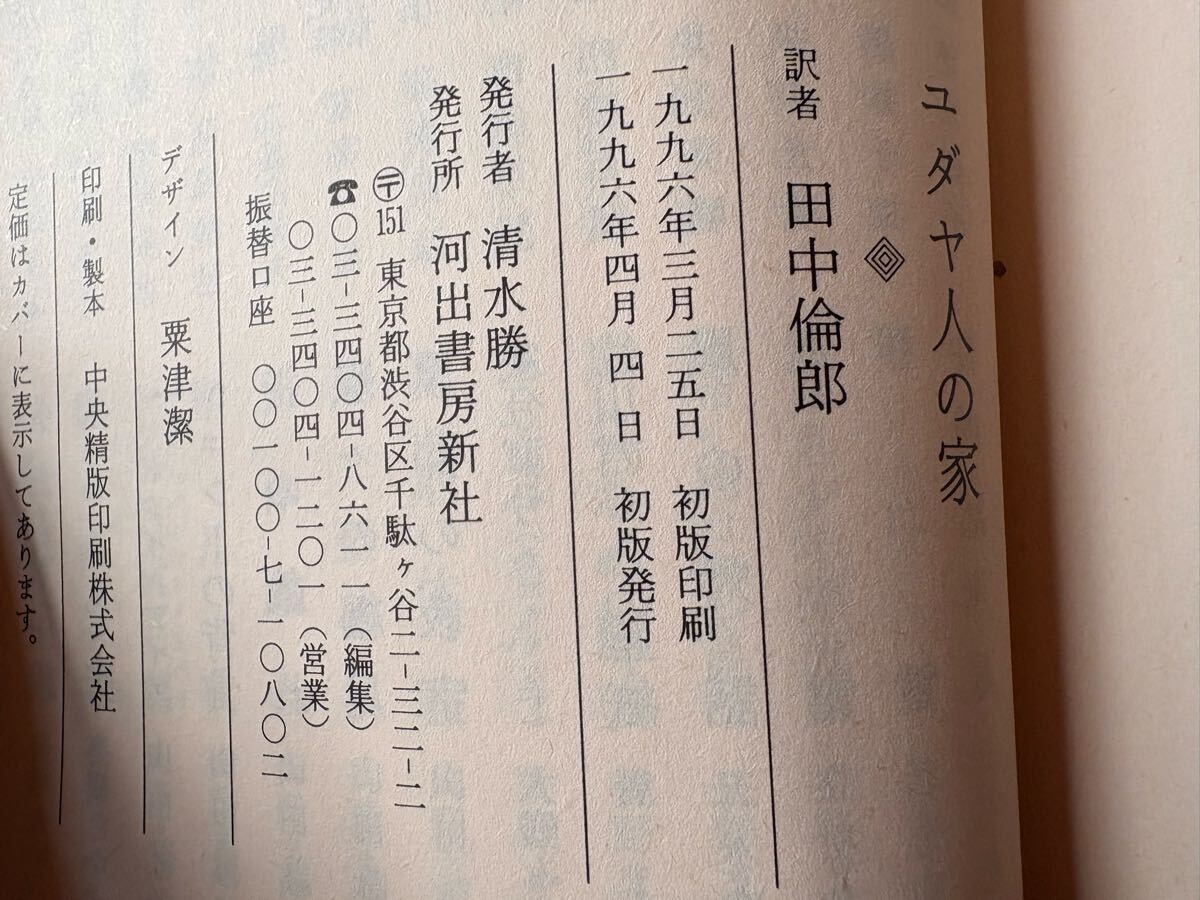 ユダヤ人の家
訳者 田中倫郎
一九九六年三月二五日 初版印刷
一九九六年四月 四 日 初版発行
発行者 清水勝
発行所 河出書房新社
〒151 東京都渋谷区千駄ヶ谷二-三二-二
☎〇三-三四〇四-八六一一(編集)
〇三-三四〇四-一二〇一(営業)
振替口座 〇〇一〇〇-七-一〇八〇二
デザイン 粟津潔
印刷・製本 中央精版印刷株式会社
定価はカバーに表示してあります。